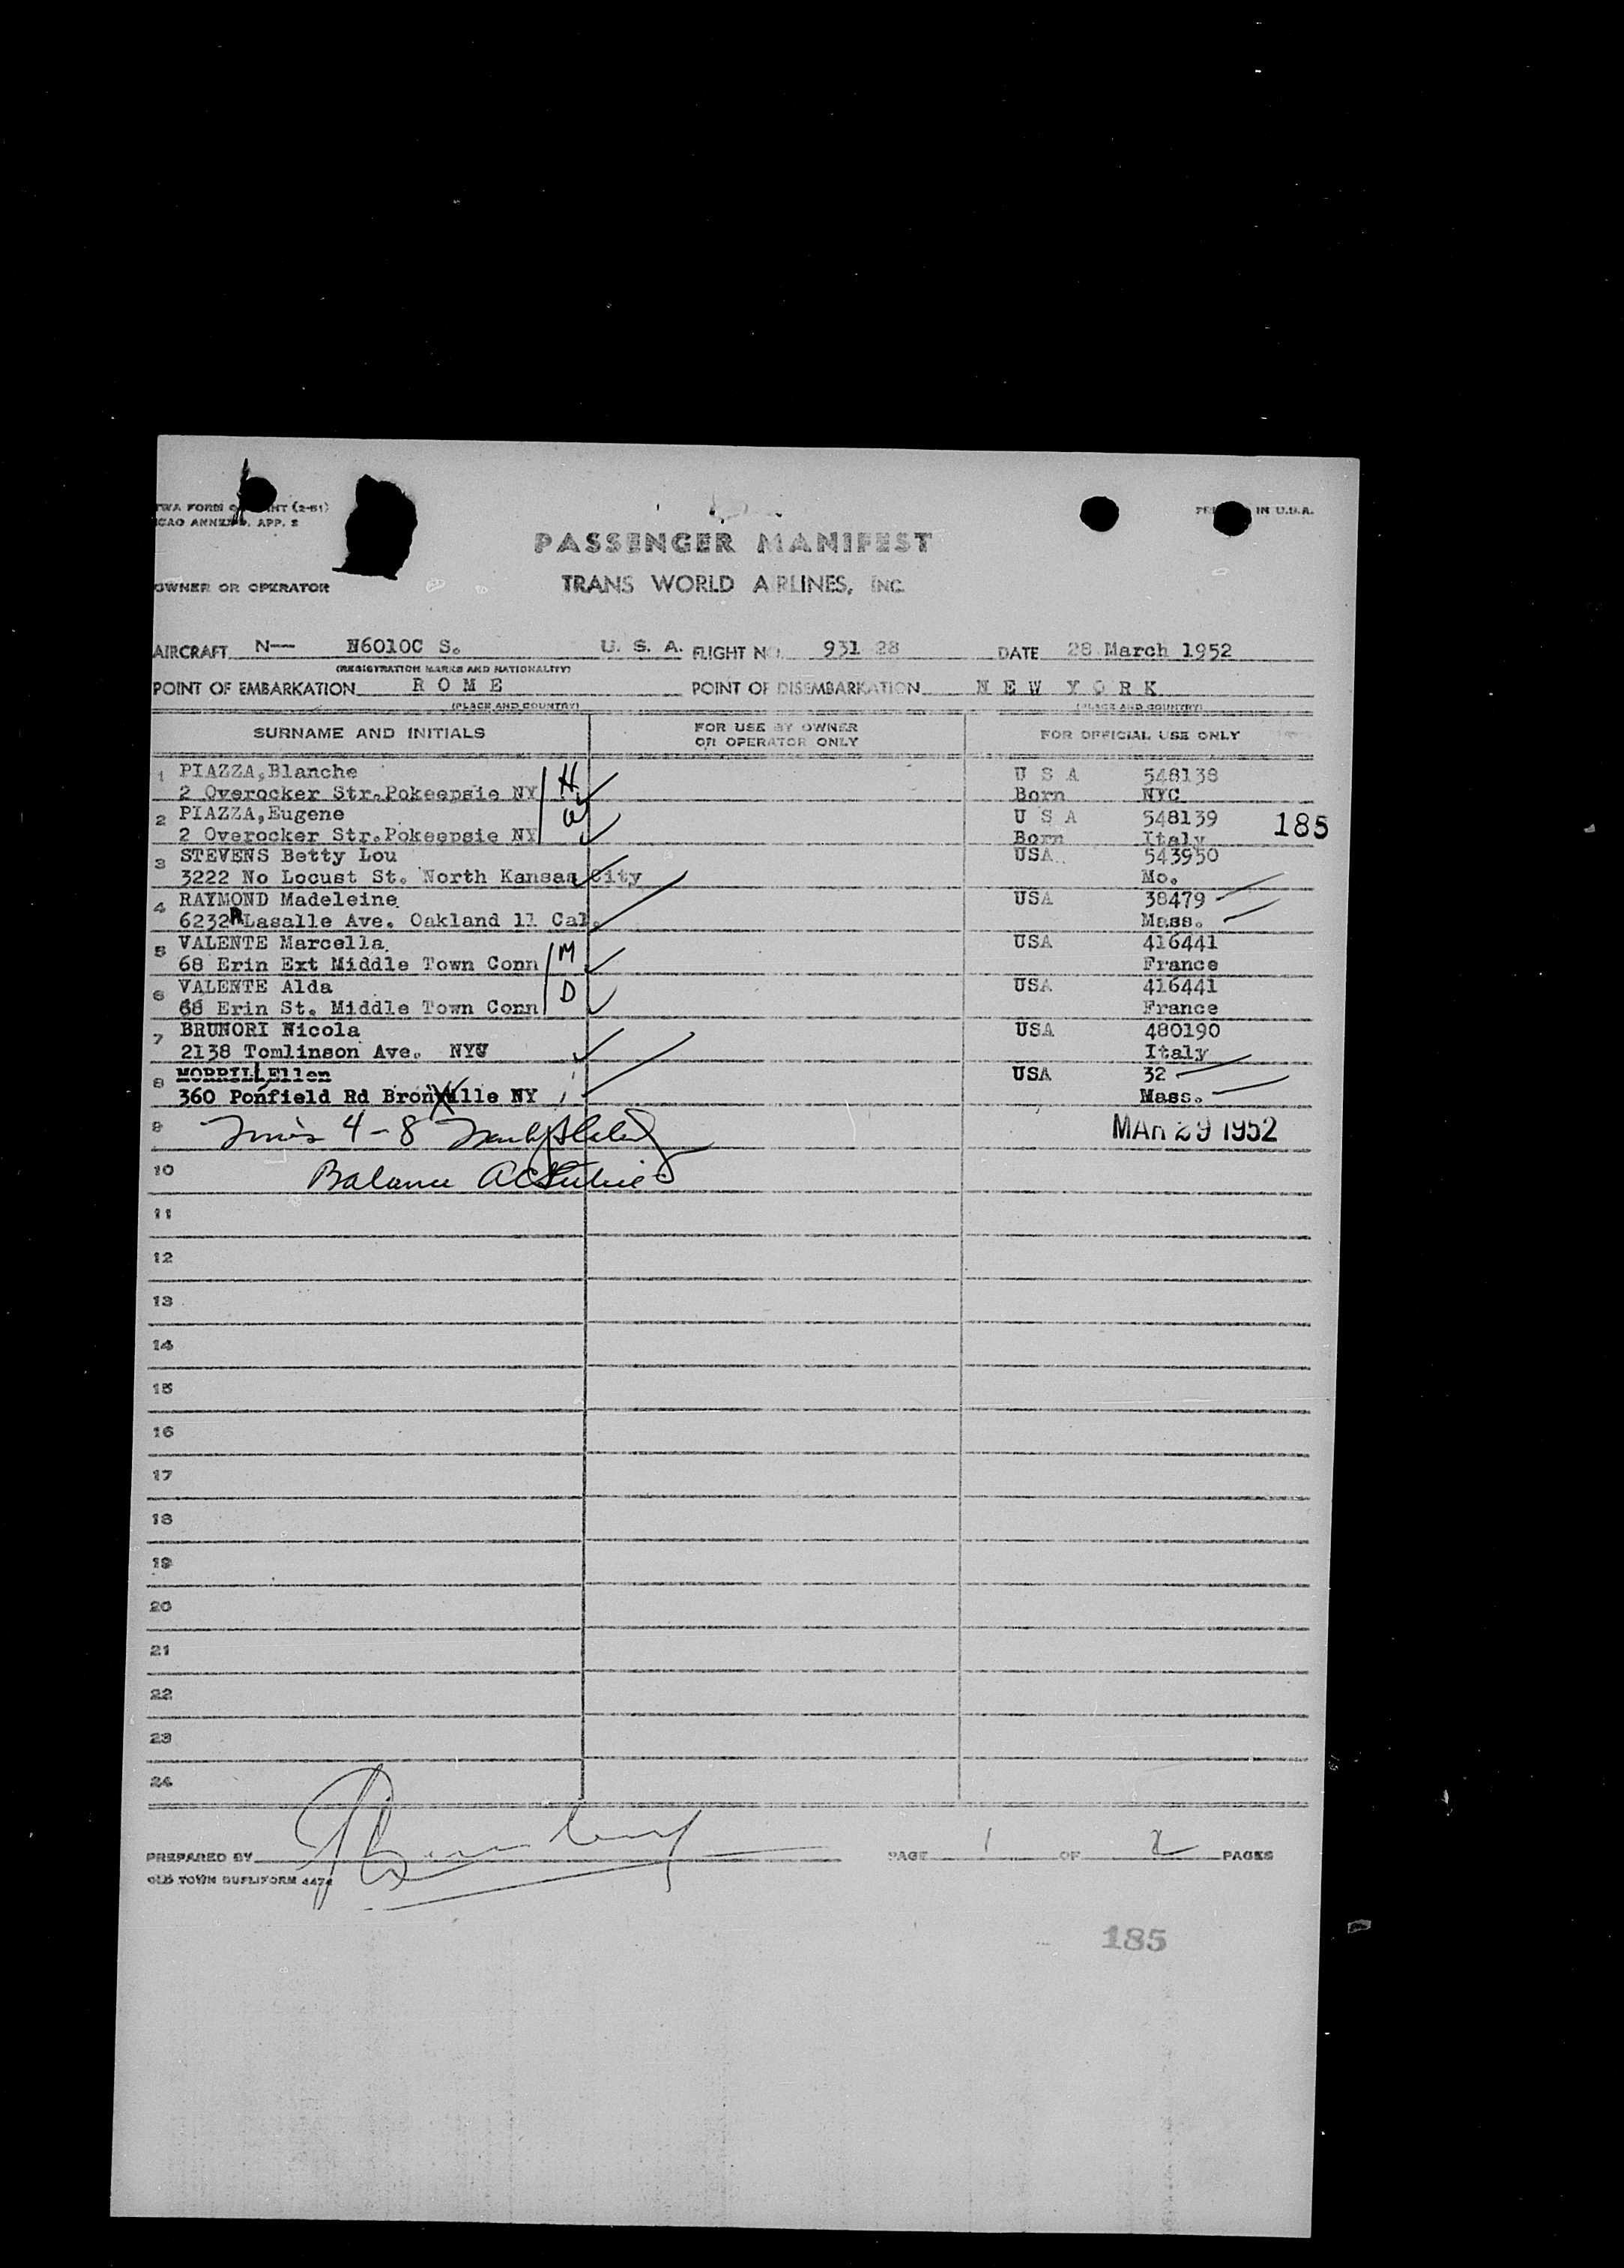 TWA FORM (2-51)
ICAO ANNEX 9, APP. 2
IN U.S.A.
PASSENGER MANIFEST
OWNER OR OPERATOR
TRANS WORLD AIRLINES, INC.
AIRCRAFT N— N6010C S. U. S. A. FLIGHT NO. 931 28 DATE 28 March 1952
(REGISTRATION MARKS AND NATIONALITY)
POINT OF EMBARKATION R O M E POINT OF DISEMBARKATION N E W Y O R K
(PLACE AND COUNTRY) (PLACE AND COUNTRY)
SURNAME AND INITIALS FOR USE BY OWNER OR OPERATOR ONLY FOR OFFICIAL USE ONLY
1 PIAZZA,Blanche H U S A 548138
2 Overocker Str.Pokeepsie NY Born NYC
2 PIAZZA,Eugene W U S A 548139 185
2 Overocker Str.Pokeepsie NY Born Italy
3 STEVENS Betty Lou USA 543950
3222 No Locust St. North Kansas City Mo.
4 RAYMOND Madeleine USA 38479
6232 R Lasalle Ave. Oakland 11 Cal. Mass.
5 VALENTE Marcella M USA 416441
68 Erin Ext Middle Town Conn France
6 VALENTE Alda D USA 416441
68 Erin St. Middle Town Conn France
7 BRUNORI Nicola USA 480190
2138 Tomlinson Ave. NYU Italy
8 MORRILL Ellen USA 32
360 Ponfield Rd Bronxville NY Mass.
9 4-8 MAR 29 1952
10 Balance
11
12
13
14
15
16
17
18
19
20
21
22
23
24
PREPARED BY PAGE 1 OF 2 PAGES
OLD TOWN DUPLIFORM 4474
185